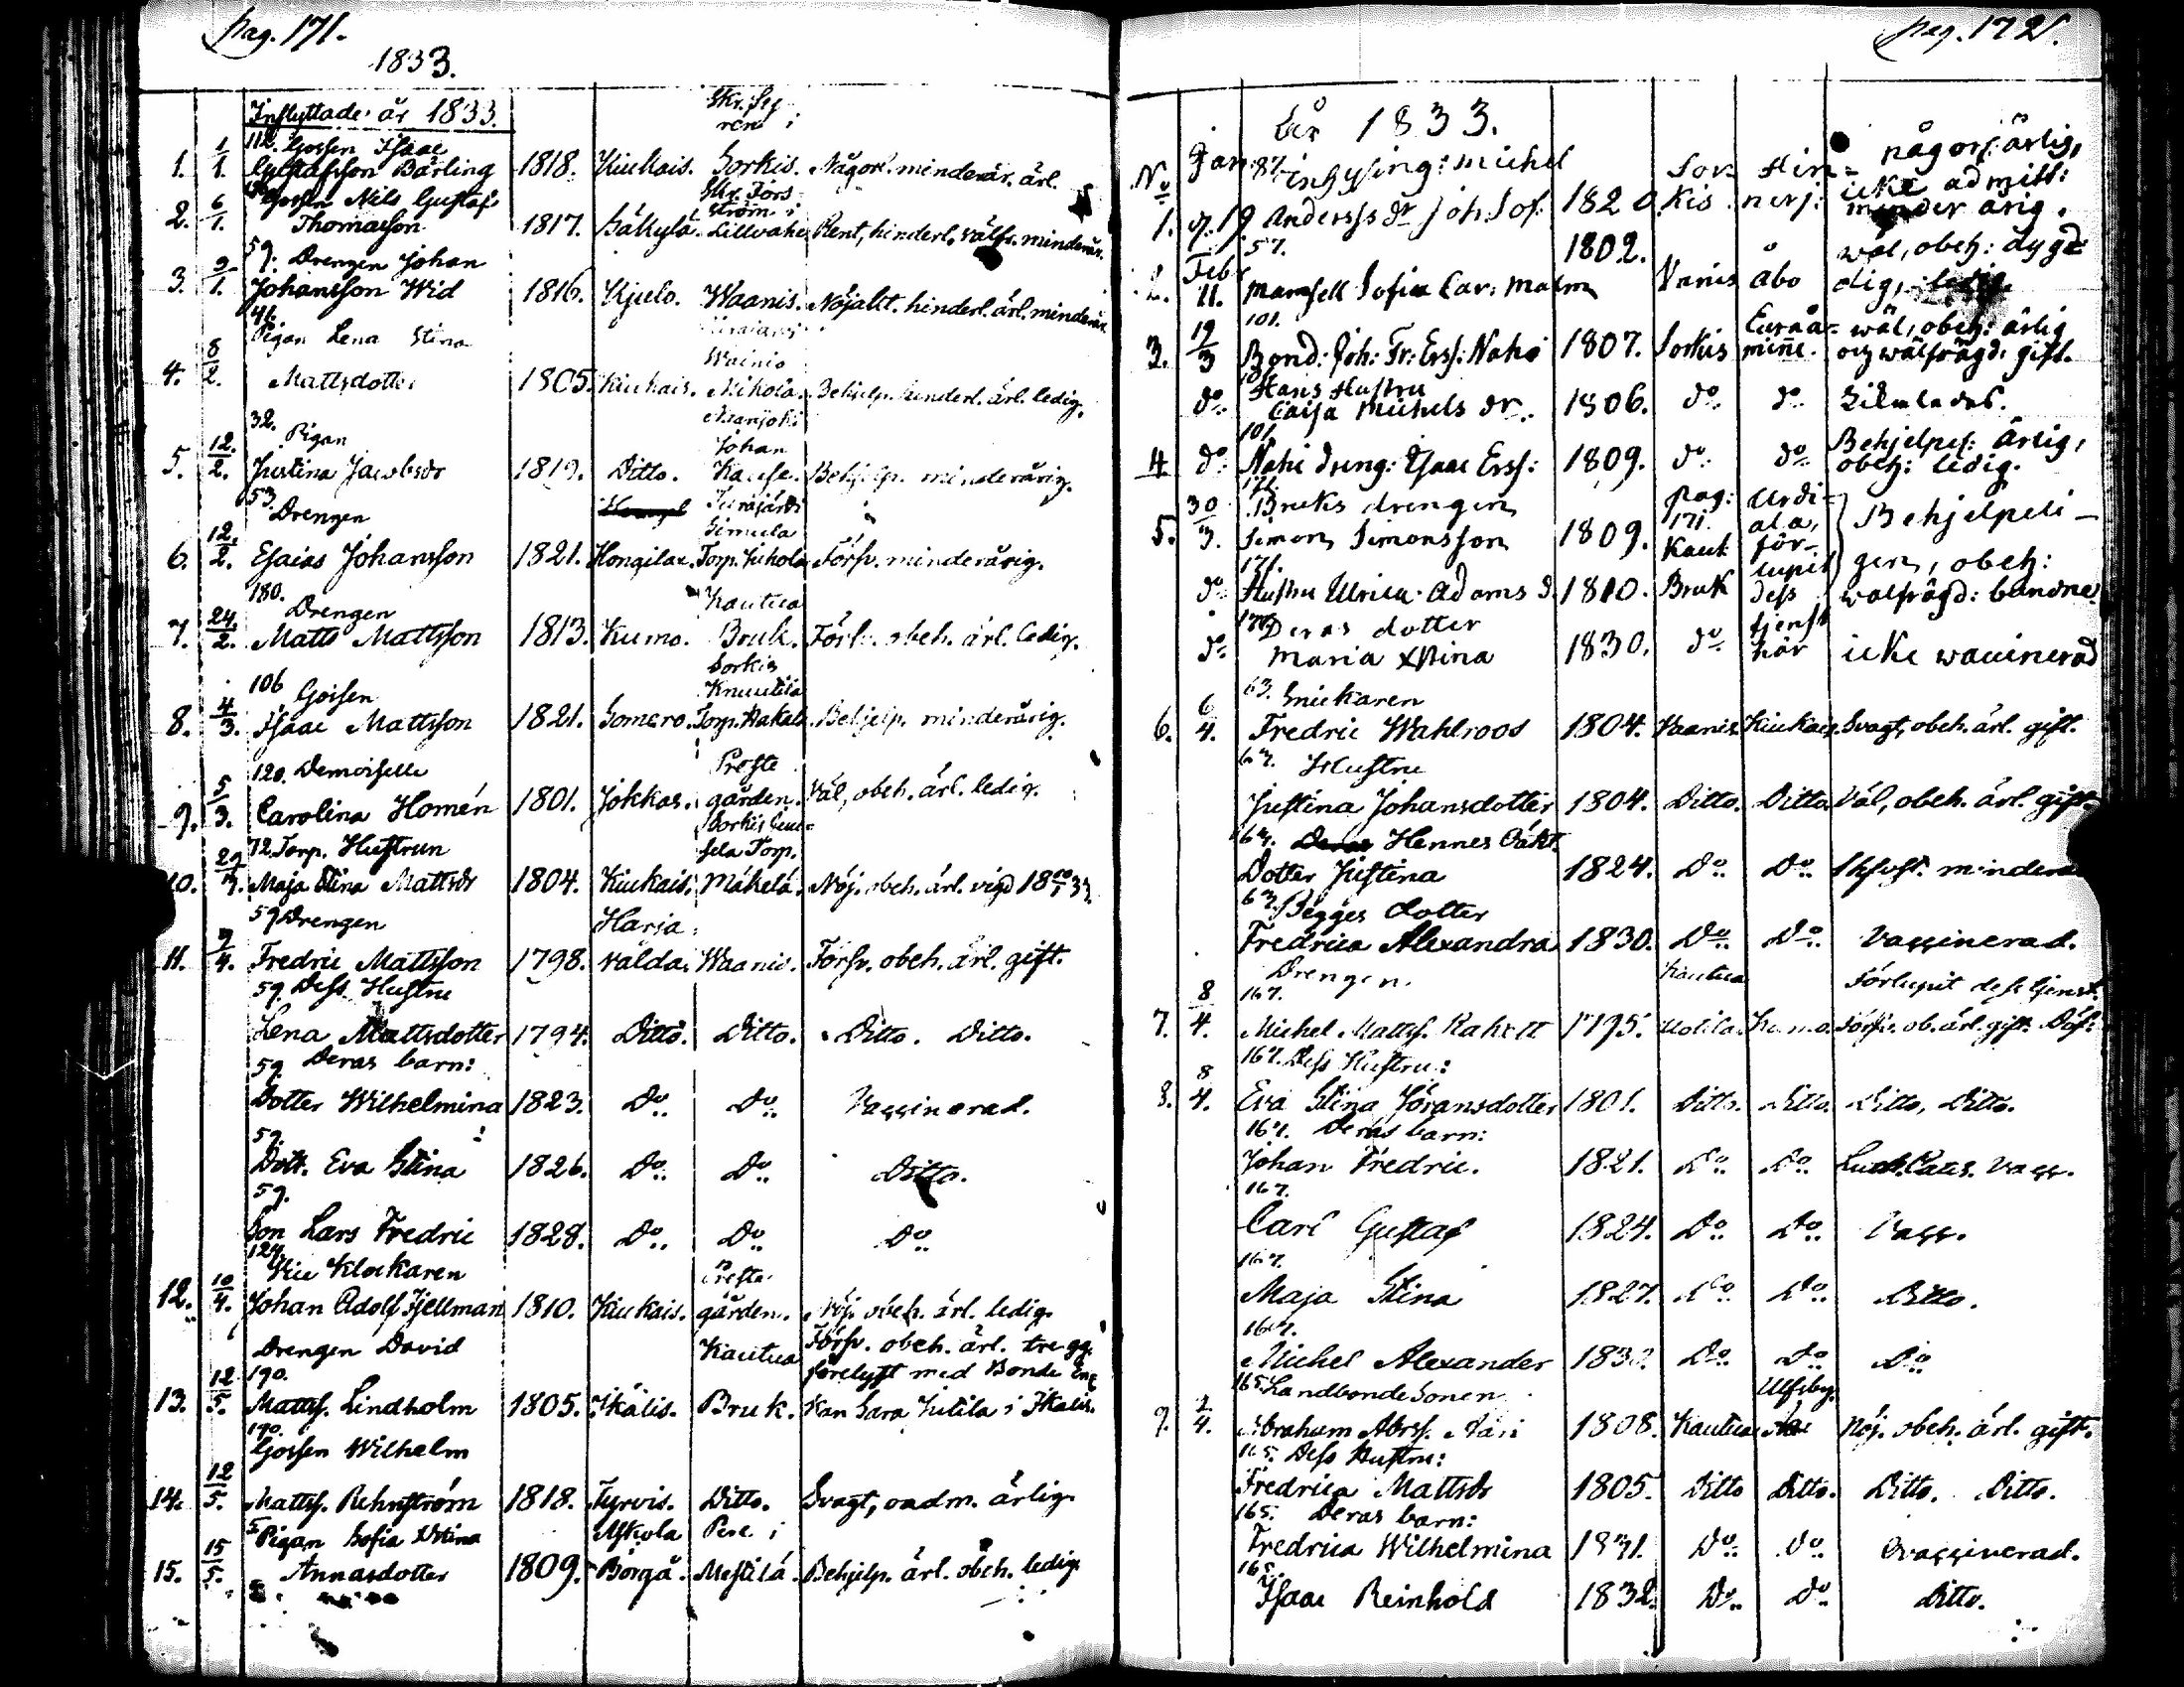 pag. 171.
1833.
Inflyttade år 1833.
112. Gossen Isaac
1. 1/1. Gustafsson Bärling 1818. Kiukais. Sorkis. Någorl. minderår. ärl.
Gossen Nils Gustaf
2. 6/1. Thomasson 1817. Säkylä. Lillvahe Rent, hinderl. välfr. minderår.
59. Drengen Johan
3. 9/1. Johansson Wid 1816. Kjulo. Waanis. Nöjakt. hinderl. ärl. minderår.
41.
Pigan Lena Stina
Wainio
4. 8/2. Mattsdotter 1805. Kiukais. Nikola. Behjelp. hinderl. ärl. ledig.
32. Pigan
Johan
5. 12./2. Justina Jacobsdr 1819. Ditto. Behjelp. minderårig.
53. Drengen
6. 12./2. Esaias Johansson 1821. Hongilax. Torp. Juhola Försv. minderårig.
180. Drengen
Kautua
7. 24/2. Matts Mattsson 1813. Kumo. Bruk. Försv. obeh. ärl. ledig.
Sorkis
106 Gossen
Knuutila
8. 4/3. Isaac Mattsson 1821. Somero. Torp. Hakala Behjelp. minderårig.
120. Demoiselle
Preste
9. 5/3. Carolina Homén 1801. Jokkas. gården. Väl, obeh. ärl. ledig.
72. Torp. Hustrun
sela Torp.
10. 29/3. Maja Stina Mattsdr 1804. Kiukais. Mäkelä. Nöj. obeh. ärl. vigd 18 33.
59 Drengen
Harja
11. 7/4. Fredric Mattsson 1798. valda. Waanis. Försv. obeh. ärl. gift.
59. Dess Hustru
Lena Mattsdotter 1794. Ditto. Ditto. Ditto. Ditto.
59. Deras barn:
Dotter Wilhelmina 1823. Do. Do. Vaccinerad.
59.
Dott. Eva Stina 1826. Do. Do. Ditto.
59.
Son Lars Fredric 1828. Do. Do. Do.
124.
Vice Klockaren
Preste
12. 10/4. Johan Adolf Fjellman 1810. Kiukais. gården. Nöj. obeh. ärl. ledig.
Drengen David Kautua Försv. obeh. ärl. tre gg.
190. förelyst med Bonde Enk
13. 12/5. Mattss. Lindholm 1805. Ikalis. Bruk. kan Sara Jutila i Ikalis.
190.
Gossen Wilhelm
14. 12/5. Mattss. Rehnström 1818. Tyrvis. Ditto. Svagt, oadm. ärlig.
5 Pigan Sofia Stina Askola i
15. 15/5. Annasdotter 1809. Borgå. Mestilä. Behjelp. ärl. obeh. ledig.
pag. 172.
År 1833.
No Jan. 87. Michel Sor- Hin- någorl. ärlig,
icke admitt:
1. Anderss dr Joh. Sof: 1820. kis nerj: minderårig.
57. 1802. wäl, obeh: dygd
2. Febr 11. Mamsell Sofia Car: Malm Vanis Åbo dig, ledig.
101. Euraå- wäl, obeh: ärlig
3. 19/3 Bond: Joh: Fr: Erss: Nahi 1807. Sorkis minne. och wälfrägd: gift.
101. Hans Hustru
do Caisa Michels dr. 1806. do do Lika ledes.
101. Behjelpl: ärlig,
4 do Nahi dreng: Isaac Erss: 1809. do do obeh: ledig.
171. Bruks drengen pag: Urdi-
5. 30/3. Simon Simonsson 1809. 171. ala, Behjelpeli-
Kaut för-
171. lupit gen, obeh:
do Hustru Ulrica Adams d 1810. Bruk dess walfrägd: bandne
Deras dotter tjenst
do Maria Stina 1830. do här icke waccinerad
63. Snickaren
6. 6/4. Fredric Wahlroos 1804. Vaanis. Kiukais. Svagt, obeh. ärl. gift.
63. Hustru
Justina Johansdotter 1804. Ditto. Ditto Väl, obeh. ärl. gift.
63. Hennes Oäkt.
Dotter Justina 1824. Do. Do. minderå
63. Bägges dotter
Fredrica Alexandra 1830. Do. Do. Vaccinerad.
Drengen. Kautua Förlupit dess tjenst.
167.
7. 8/4. Michel Mattss. Rahktt 1795. Uotila Försv. ob. ärl. gift.
167. Dess Hustru:
8. 8/4. Eva Stina Göransdotter 1801. Ditto. Ditto. Ditto, Ditto.
167. Deras barn:
Johan Fredric. 1821. Do. Do. Luth. Cates. Vacc.
167.
Carl Gustaf 1824. Do. Do. Vacc.
167.
Maja Stina 1827. Do. Do. Ditto.
167.
Michel Alexander Do. Do. Do.
165. Landbonde Sonen Ulfsby.
9. 2/4. Abraham Abrss. 1808. Kautua Nöj. obeh. ärl. gift.
165. Dess Hustru:
Fredrica Mattsdr 1805. Ditto Ditto. Ditto. Ditto.
165. Deras barn:
Fredrica Wilhelmina 1831. Do. Do. Vaccinerad.
165.
Isaac Reinhold 1832. Do. Do. Ditto.